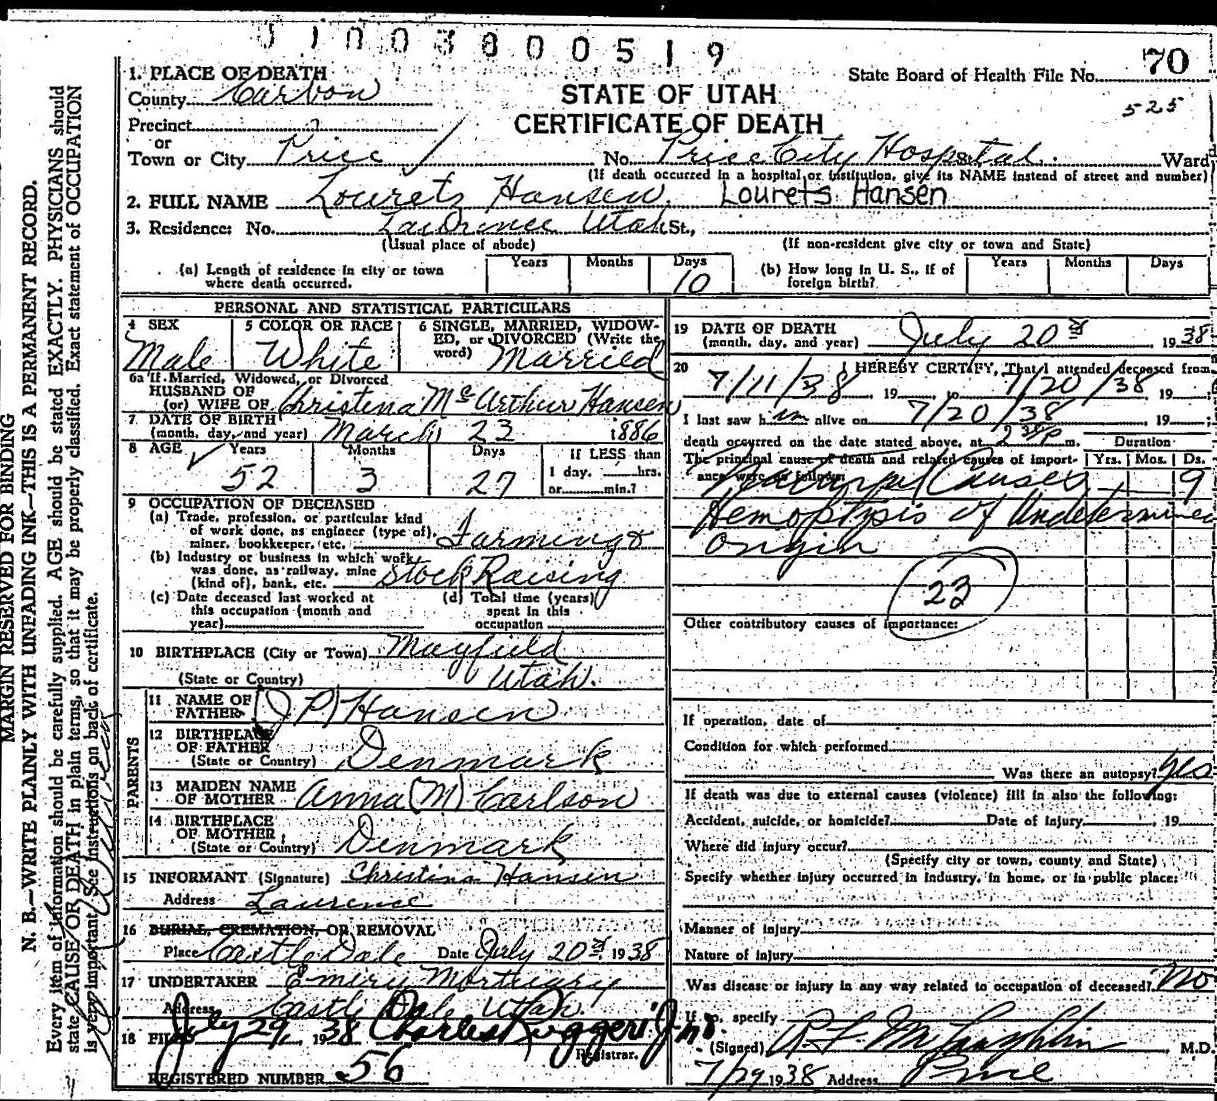 1003800519
70
State Board of Health File No.
525
1. PLACE OF DEATH
County Carbon
STATE OF UTAH
CERTIFICATE OF DEATH
Precinct
or
Town or City Price No. Price City Hospital St. Ward
(If death occurred in a hospital or institution, give its NAME instead of street and number)
2. FULL NAME Lourets Hansen Lourets Hansen
3. Residence: No. Lawrence Utah St.,
(Usual place of abode) (If non-resident give city or town and State)
(a) Length of residence in city or town where death occurred. Years Months Days 10
(b) How long in U. S., if of foreign birth? Years Months Days
PERSONAL AND STATISTICAL PARTICULARS
4 SEX Male
5 COLOR OR RACE White
6 SINGLE, MARRIED, WIDOWED, or DIVORCED (Write the word) Married
6a If Married, Widowed, or Divorced
HUSBAND OF
(or) WIFE OF Christina McArthur Hansen
7 DATE OF BIRTH
(month, day, and year) March 23 1886
8 AGE Years Months Days If LESS than
52 3 27 1 day, hrs.
or min.?
9 OCCUPATION OF DECEASED
(a) Trade, profession, or particular kind
of work done, as engineer (type of),
miner, bookkeeper, etc. Farming &
(b) Industry or business in which work
was done, as railway, mine
(kind of), bank, etc. Stock Raising
(c) Date deceased last worked at
this occupation (month and
year)
(d) Total time (years)
spent in this
occupation
10 BIRTHPLACE (City or Town) Mayfield
(State or Country) Utah.
PARENTS
11 NAME OF
FATHER (J P) Hansen
12 BIRTHPLACE
OF FATHER
(State or Country) Denmark
13 MAIDEN NAME
OF MOTHER Anna (M) Carlson
14 BIRTHPLACE
OF MOTHER
(State or Country) Denmark
15 INFORMANT (Signature) Christina Hansen
Address Lawrence
16 BURIAL, CREMATION, OR REMOVAL
Place Castle Dale Date July 20 1938
17 UNDERTAKER Emery Mortuary
Address Castle Dale Utah
18 FILED July 29, 1938 Charles Ruggeri Jr.
Registrar.
REGISTERED NUMBER 56
19 DATE OF DEATH
(month, day, and year) July 20 1938
20 I HEREBY CERTIFY, That I attended deceased from
7/11/38, 19 to 7/20/38, 19 ;
I last saw him alive on 7/20/38 19 ;
death occurred on the date stated above, at 2 p m. Duration
The principal cause of death and related causes of importance were as follows: Yrs. Mos. Ds.
Natural Causes 9
Hemoptysis of Undetermined
origin
23
Other contributory causes of importance:
If operation, date of
Condition for which performed
Was there an autopsy? Yes
If death was due to external causes (violence) fill in also the following:
Accident, suicide, or homicide? Date of injury 19
Where did injury occur?
(Specify city or town, county and State)
Specify whether injury occurred in industry, in home, or in public place:
Manner of injury
Nature of injury
Was disease or injury in any way related to occupation of deceased? No
If so, specify
(Signed) R. F. McLaughlin M.D.
7/29 1938 Address Price
MARGIN RESERVED FOR BINDING
N. B.—WRITE PLAINLY WITH UNFADING INK—THIS IS A PERMANENT RECORD.
Every item of information should be carefully supplied. AGE should be stated EXACTLY. PHYSICIANS should
state CAUSE OF DEATH in plain terms, so that it may be properly classified. Exact statement of OCCUPATION
is very important. See instructions on back of certificate.